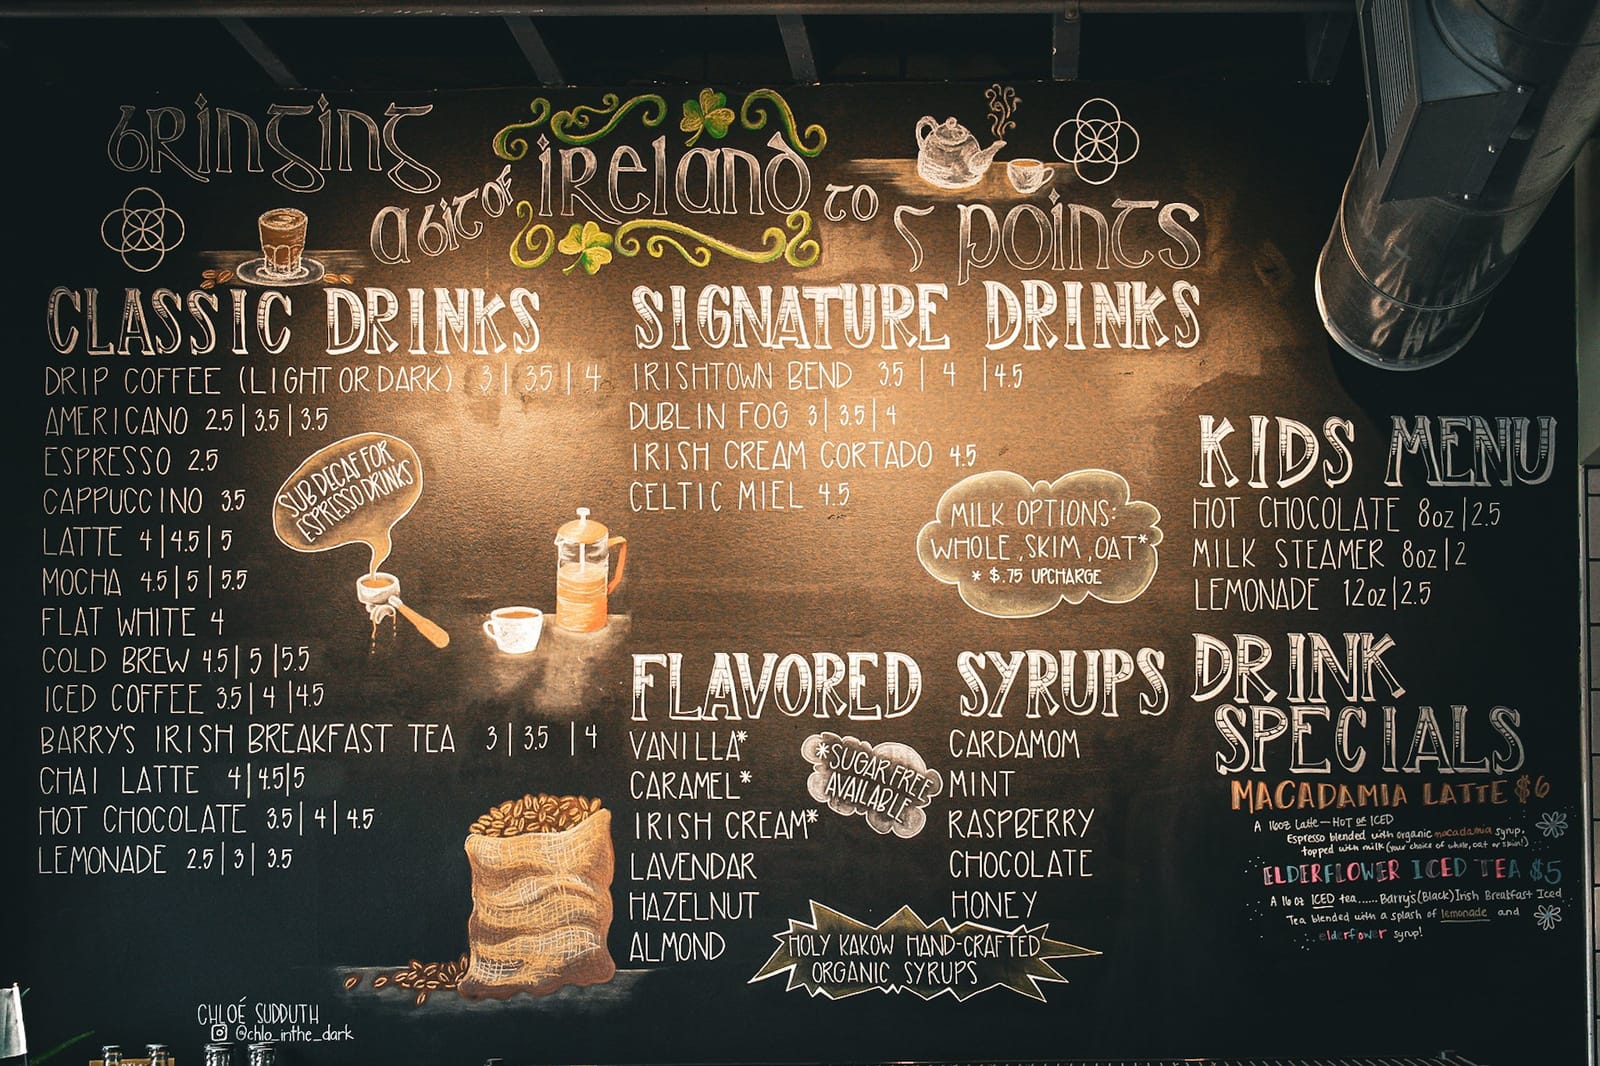 BRINGING
A BIT OF IRELAND TO
5 POINTS
CLASSIC DRINKS
DRIP COFFEE (LIGHT OR DARK) 3 | 3.5 | 4
AMERICANO 2.5 | 3.5 | 3.5
ESPRESSO 2.5
CAPPUCCINO 3.5
LATTE 4 | 4.5 | 5
MOCHA 4.5 | 5 | 5.5
FLAT WHITE 4
COLD BREW 4.5 | 5 | 5.5
ICED COFFEE 3.5 | 4 | 4.5
BARRY'S IRISH BREAKFAST TEA 3 | 3.5 | 4
CHAI LATTE 4 | 4.5 | 5
HOT CHOCOLATE 3.5 | 4 | 4.5
LEMONADE 2.5 | 3 | 3.5
SUB DECAF FOR
ESPRESSO DRINKS
SIGNATURE DRINKS
IRISHTOWN BEND 3.5 | 4 | 4.5
DUBLIN FOG 3 | 3.5 | 4
IRISH CREAM CORTADO 4.5
CELTIC MIEL 4.5
MILK OPTIONS:
WHOLE, SKIM, OAT*
* $.75 UPCHARGE
FLAVORED SYRUPS
VANILLA*
CARAMEL*
IRISH CREAM*
LAVENDAR
HAZELNUT
ALMOND
*SUGAR FREE
AVAILABLE
CARDAMOM
MINT
RASPBERRY
CHOCOLATE
HONEY
HOLY KAKOW HAND-CRAFTED
ORGANIC SYRUPS
KIDS MENU
HOT CHOCOLATE 8oz | 2.5
MILK STEAMER 8oz | 2
LEMONADE 12oz | 2.5
DRINK
SPECIALS
MACADAMIA LATTE $6
A 16oz Latte — HOT or ICED
Espresso blended with organic macadamia syrup,
topped with milk (your choice of whole, oat or skim!)
ELDERFLOWER ICED TEA $5
A 16 oz ICED tea...... Barry's (Black) Irish Breakfast Iced
Tea blended with a splash of lemonade and
elderflower syrup!
CHLOÉ SUDDUTH
@chlo_inthe_dark